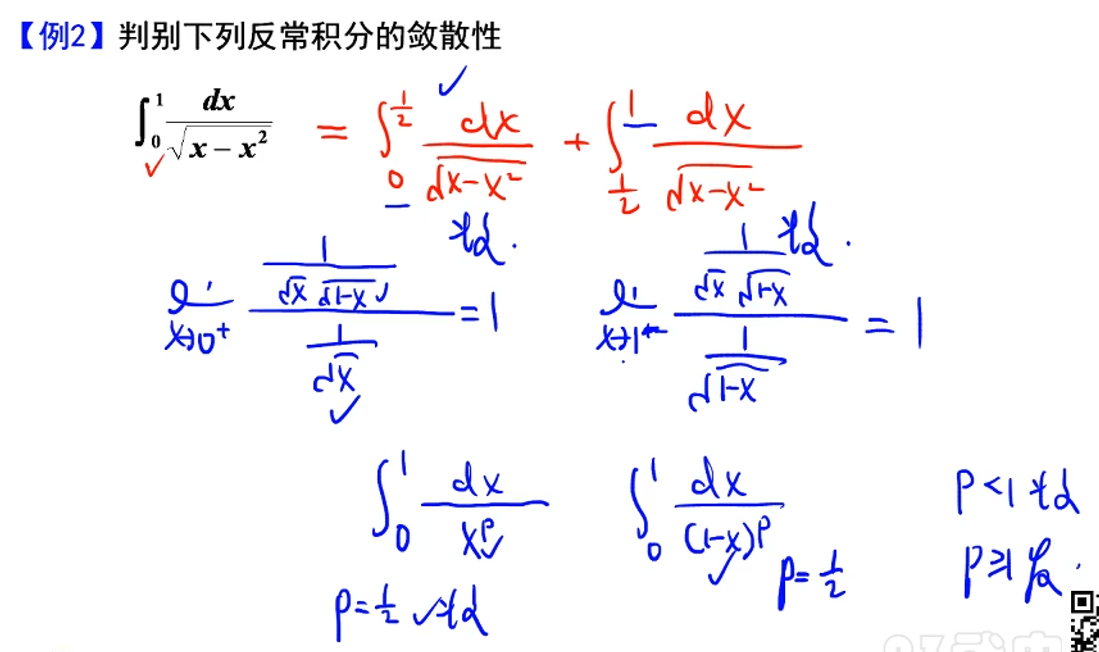 【例2】判别下列反常积分的敛散性
∫₀¹ dx/√(x−x²) = ∫₀^(1/2) dx/√(x−x²) + ∫_(1/2)^1 dx/√(x−x²)
收敛. 收敛.
lim_(x→0⁺) (1/(√x √(1−x)))/(1/√x) = 1 lim_(x→1⁻) (1/(√x √(1−x)))/(1/√(1−x)) = 1
∫₀¹ dx/x^p ∫₀¹ dx/(1−x)^p p<1 收敛
p=1/2 收敛 p=1/2 p≥1 发散.